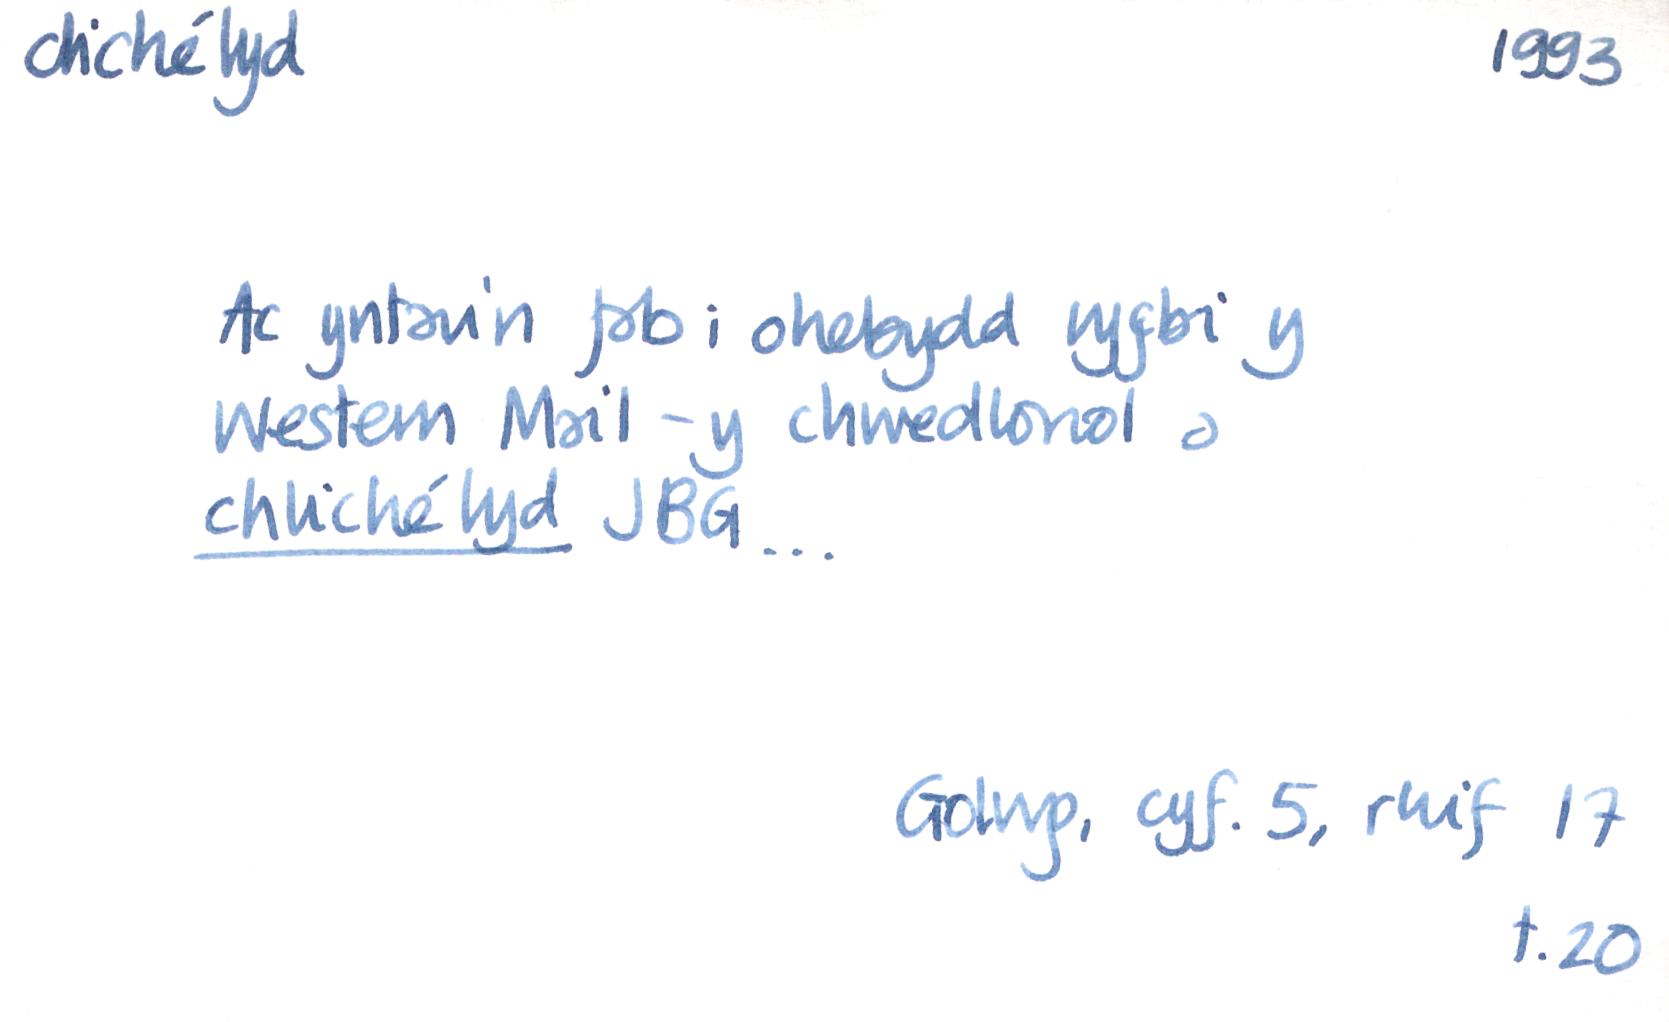 clichélyd 1993
Ac yntau'n fab i ohebydd rygbi y
Western Mail - y chwedlonol a
chlichélyd JBG...
Golwg, cyf. 5, rhif 17
t. 20